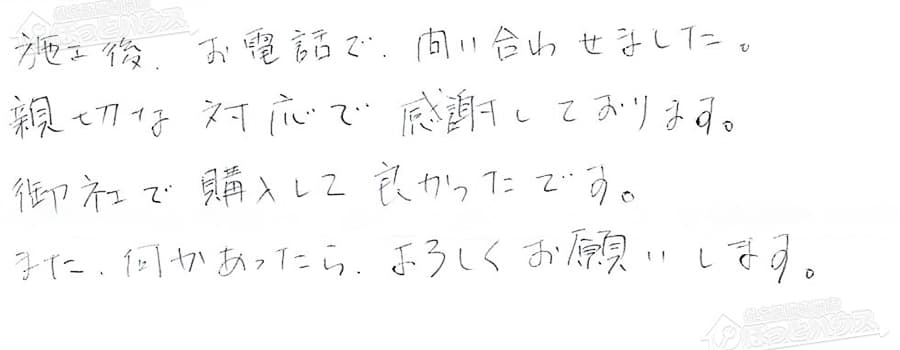 施工後、お電話で、問い合わせました。
親切な対応で感謝しております。
御社で購入して良かったです。
また、何かあったら、よろしくお願いします。
ほっとハウス